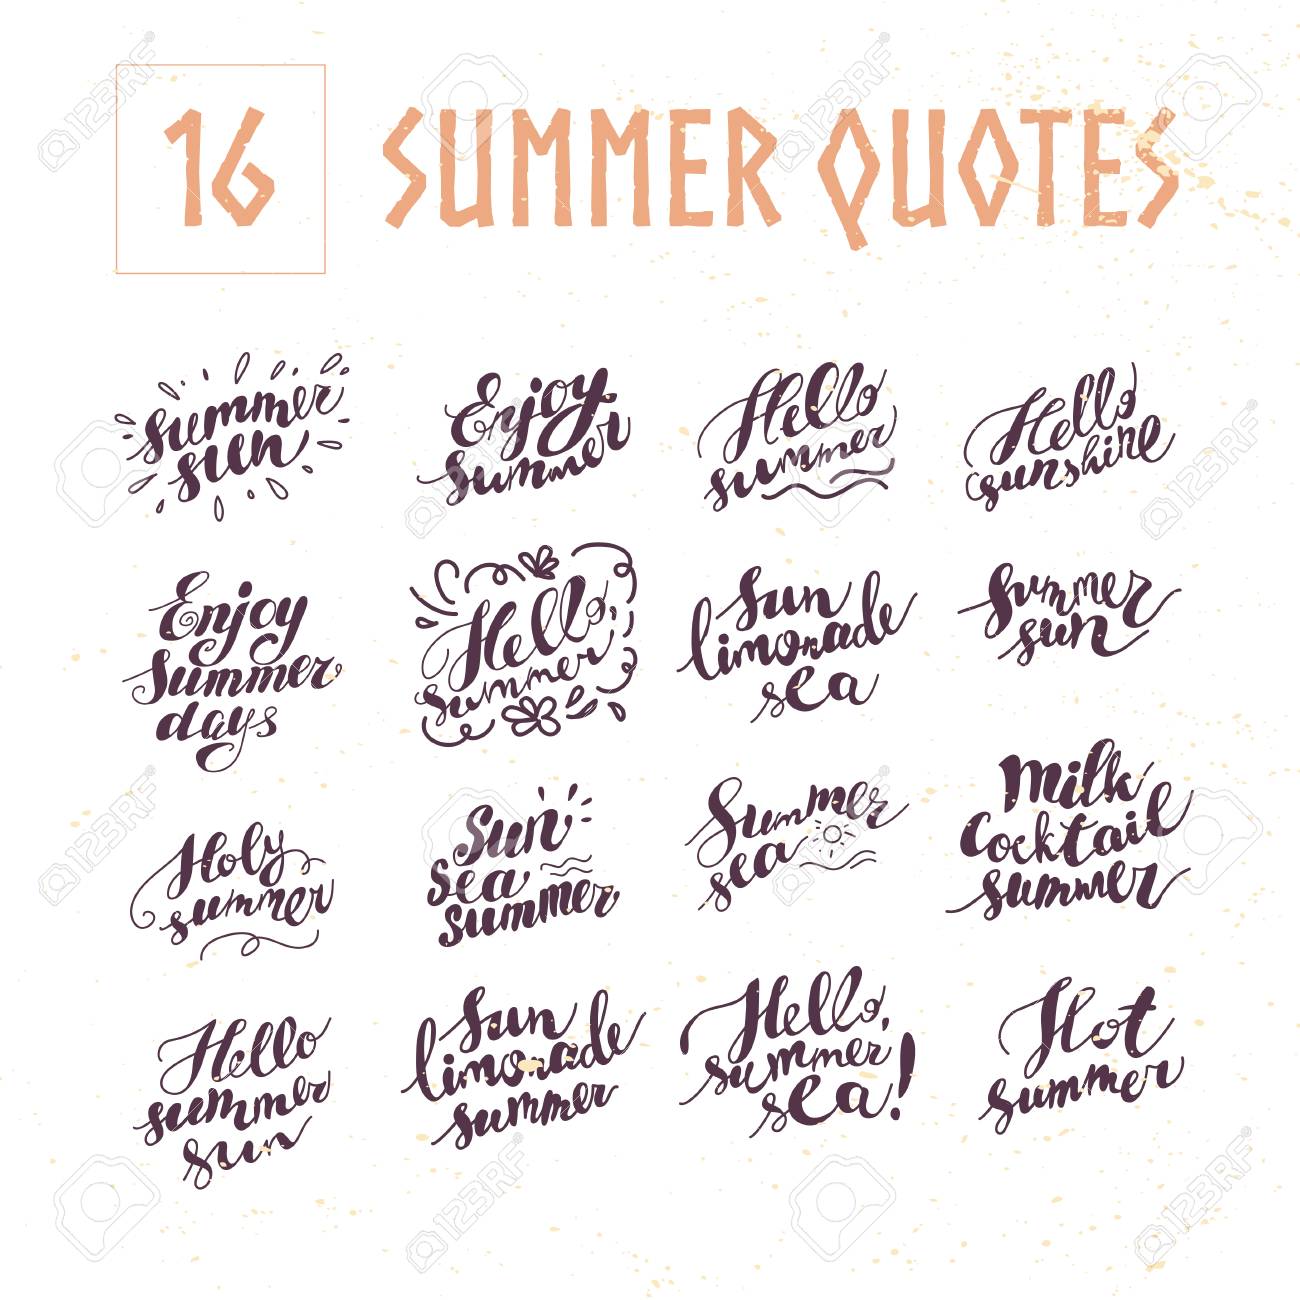 16 SUMMER QUOTES
Summer
sun
Enjoy
summer
Hello
summer
Hello
sunshine
Enjoy
summer
days
Hello,
summer
Sun
limonade
sea
Summer
sun
Holy
summer
Sun
sea
summer
Summer
sea
Milk
Cocktail
summer
Hello
summer
sun
Sun
limonade
summer
Hello,
summer
sea!
Hot
summer
123RF